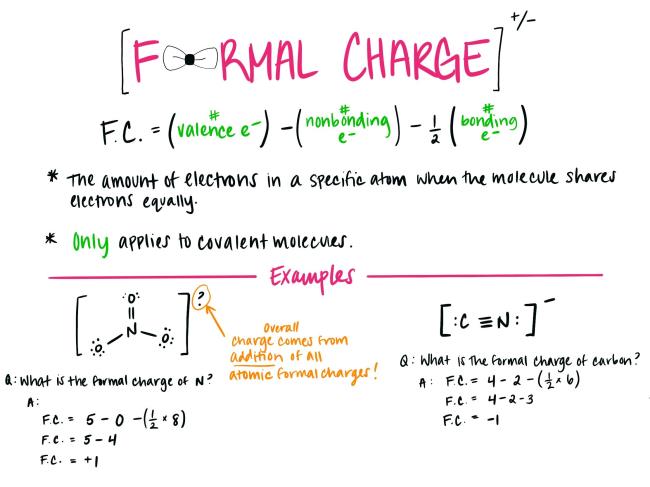 [FORMAL CHARGE]+/-
F.C. = (# valence e-) - (# nonbonding e-) - 1/2 (# bonding e-)
* The amount of electrons in a specific atom when the molecule shares
electrons equally.
* Only applies to covalent molecules.
Examples
[:O: = N - :O: - :O:] ?
Overall
charge comes from
addition of all
atomic formal charges!
Q: What is the formal charge of N?
A:
F.C. = 5 - 0 - (1/2 × 8)
F.C. = 5 - 4
F.C. = +1
[:C ≡ N:]-
Q: What is the formal charge of carbon?
A: F.C. = 4 - 2 - (1/2 × 6)
F.C. = 4 - 2 - 3
F.C. = -1